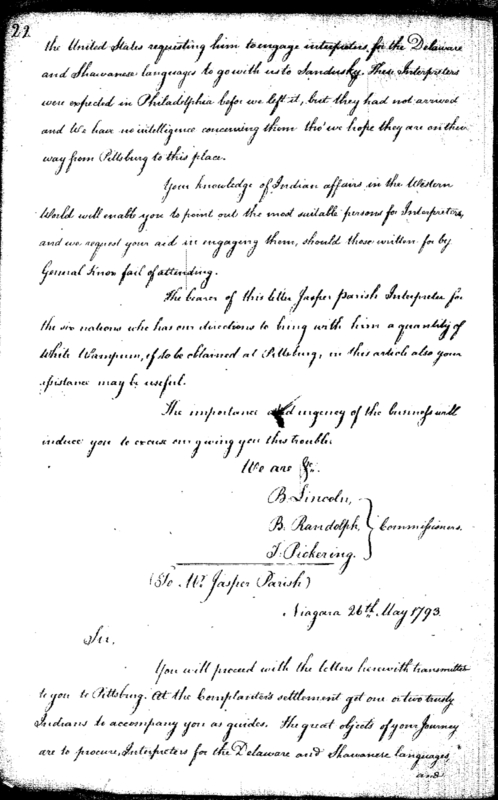 22.
the United States requesting him to engage interpreters for the Delaware
and Shawanese languages to go with us to Sandusky. These Interpreters
were expected in Philadelphia before we left it, but they had not arrived
and We have no intelligence concerning them tho' we hope they are on their
way from Pittsburg to this place.
Your knowledge of Indian affairs in the Western
World will enable you to point out the most suitable persons for Interpreters,
and we request your aid in engaging them, should those written for by
General Knox fail of attending.
The bearer of this letter Jasper Parish Interpreter for
the six nations who has our directions to bring with him a quantity of
White Wampum, if to be obtained at Pittsburg, in this article also your
assistance may be useful.
The importance and urgency of the business will
induce you to excuse our giving you this trouble.
We are &c.
B. Lincoln,
B. Randolph, } Commissioners.
T. Pickering.
(To Mr. Jasper Parish)
Niagara 26th May 1793.
Sir,
You will proceed with the letters herewith transmitted
to you to Pittsburg. At the Complanter's settlement get one or two trusty
Indians to accompany you as guides. The great objects of your Journey
are to procure Interpreters for the Delaware and Shawanese languages,
and